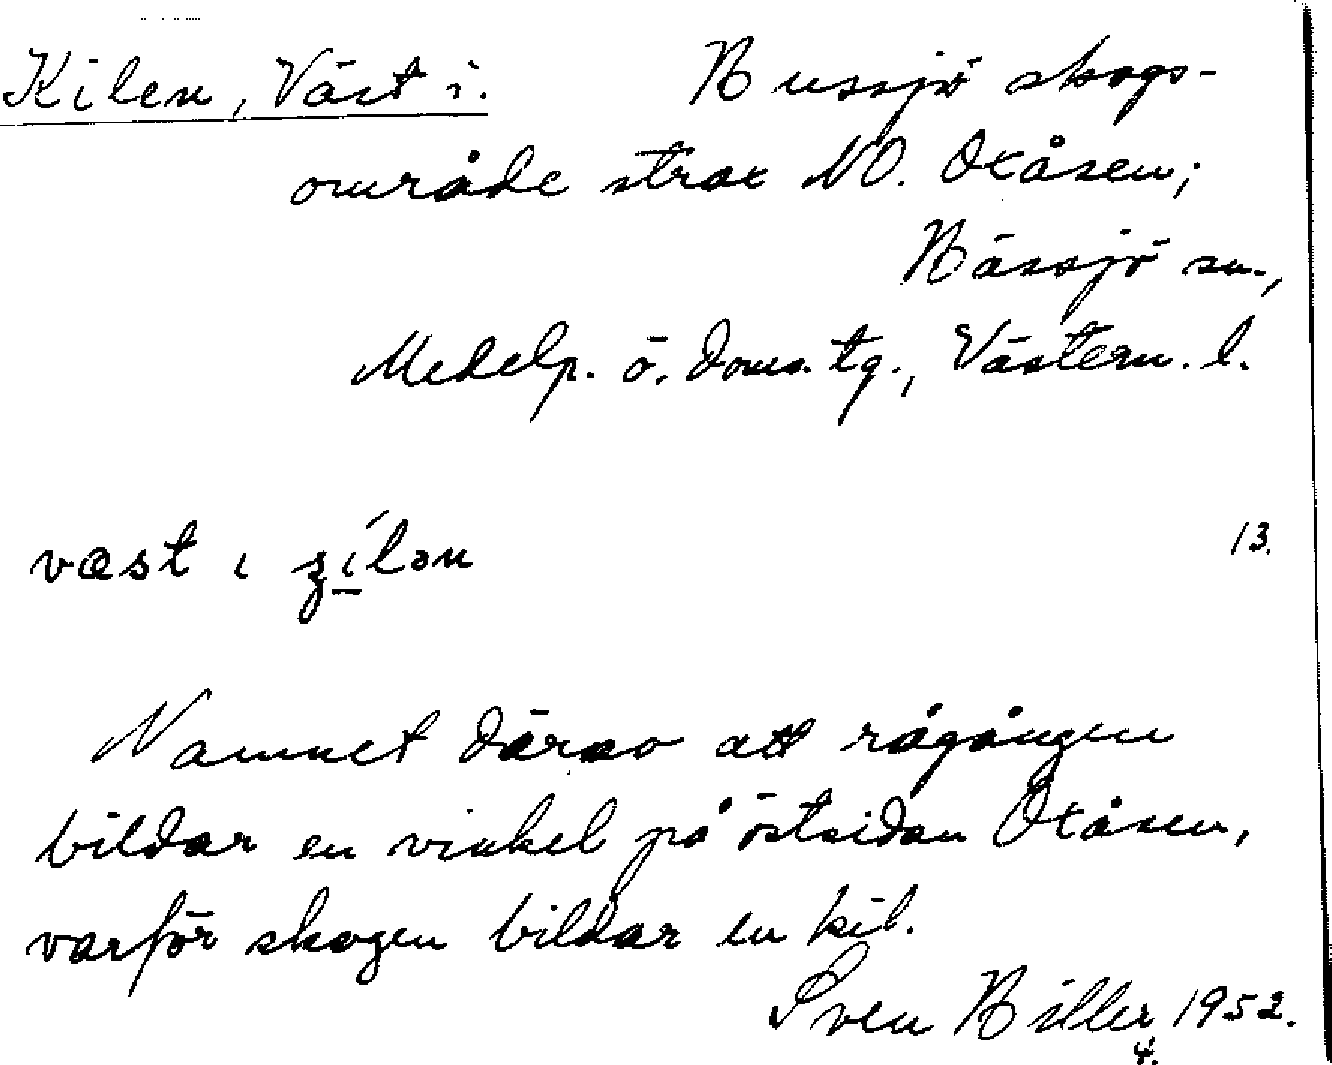 Kilen, Väst i. Bussjö skogs-
område strax NO. Oxåsen;
Bässjö sn.,
Medelp. ö. doms. tg., Västern. l.
væst ı ʒílən 13.
Namnet därav att rågången
bildar en vinkel på östsidan Oxåsen,
varför skogen bildar en kil.
Sven Biller 1952.
4.